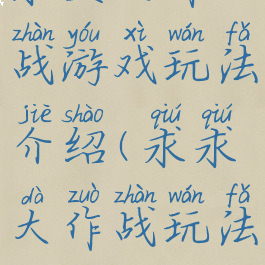 zhàn yóu xì wán fǎ
战游戏玩法
jiè shào qiú qiú
介绍(求求
dà zuò zhàn wán fǎ
大作战玩法